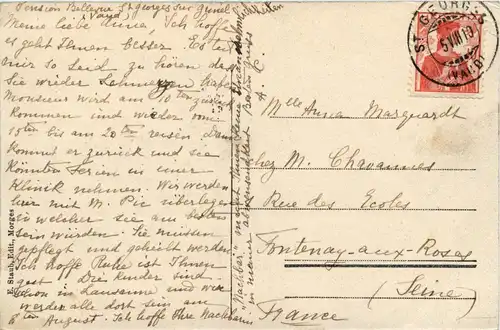 Pension Bellevue St Georges sur Gimel
Vaud
Meine liebe Anna, Ich hoffe
es geht Ihnen besser. Es tut
mir so leid zu hören dass
Sie wieder Schmerzen
Monsieur wird am 10ten zurück
kommen und wieder vom
15ten bis am 20ten reisen dann
kommt er zurück und sie
könnten Ferien in einer
Klinik nehmen. Wir werden
hier mit M. Pic überlegen
in welcher sie am besten
sein würden. Sie müssen
gepflegt und geheilt werden
Ich hoffe Ruhe ist Ihnen
gut. Die Kinder sind
schon in Lausanne und wir
werden alle dort sein am
6ten August. Ich hoffe Ihre Nachbarin
"Nachbar" macht Ihnen keine
in meiner Abwesenheit
E. Staub, Edit., Morges
ST. GEORGES
5 VIII 10
(VAUD)
Mlle Anna Marquardt
chez M. Chavannes
Rue des Ecoles
Fontenay-aux-Roses
(Seine)
France